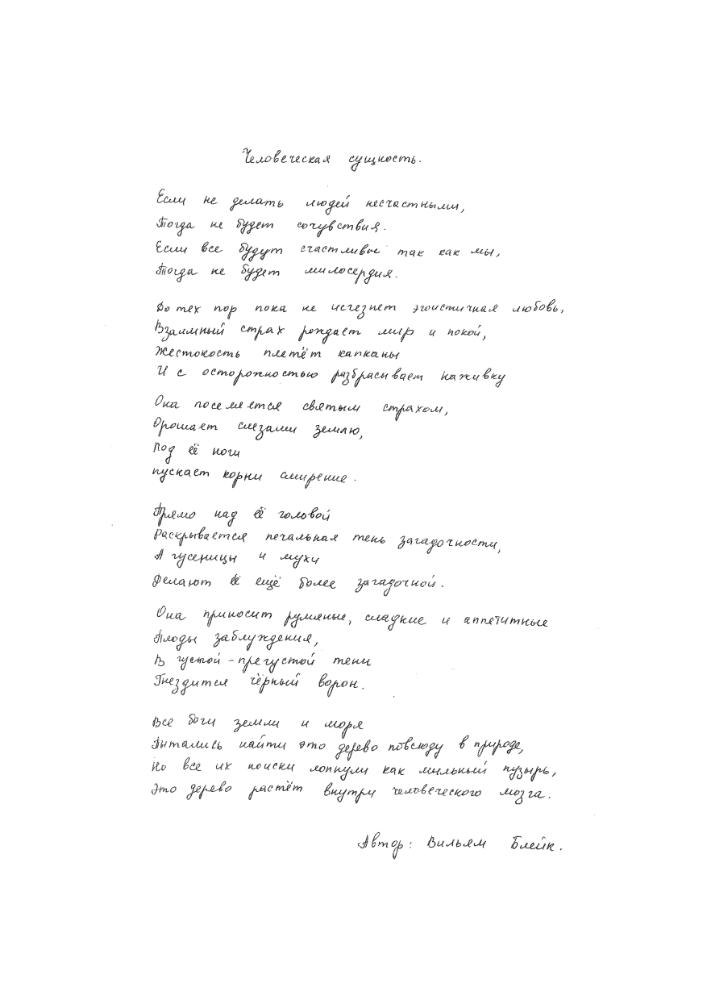 Человеческая сущность.
Если не делать людей несчастными,
Тогда не будет сочувствия.
Если все будут счастливы так как мы,
Тогда не будет милосердия.
До тех пор пока не исчезнет эгоистичная любовь,
Взаимный страх рождает мир и покой,
Жестокость плетёт капканы
И с осторожностью разбрасывает наживку
Она поселяется святым страхом,
Орошает слезами землю,
Под её ноги
пускает корни смирение.
Прямо над её головой
Раскрывается печальная тень загадочности,
А гусеницы и мухи
Делают её ещё более загадочной.
Она приносит румяные, сладкие и аппетитные
Плоды заблуждения,
В густой-прегустой тени
Гнездится чёрный ворон.
Все боги земли и моря
Питались найти это дерево повсюду в природе,
Но все их поиски лопнули как мыльный пузырь,
Это дерево растёт внутри человеческого мозга.
Автор: Вильям Блейк.